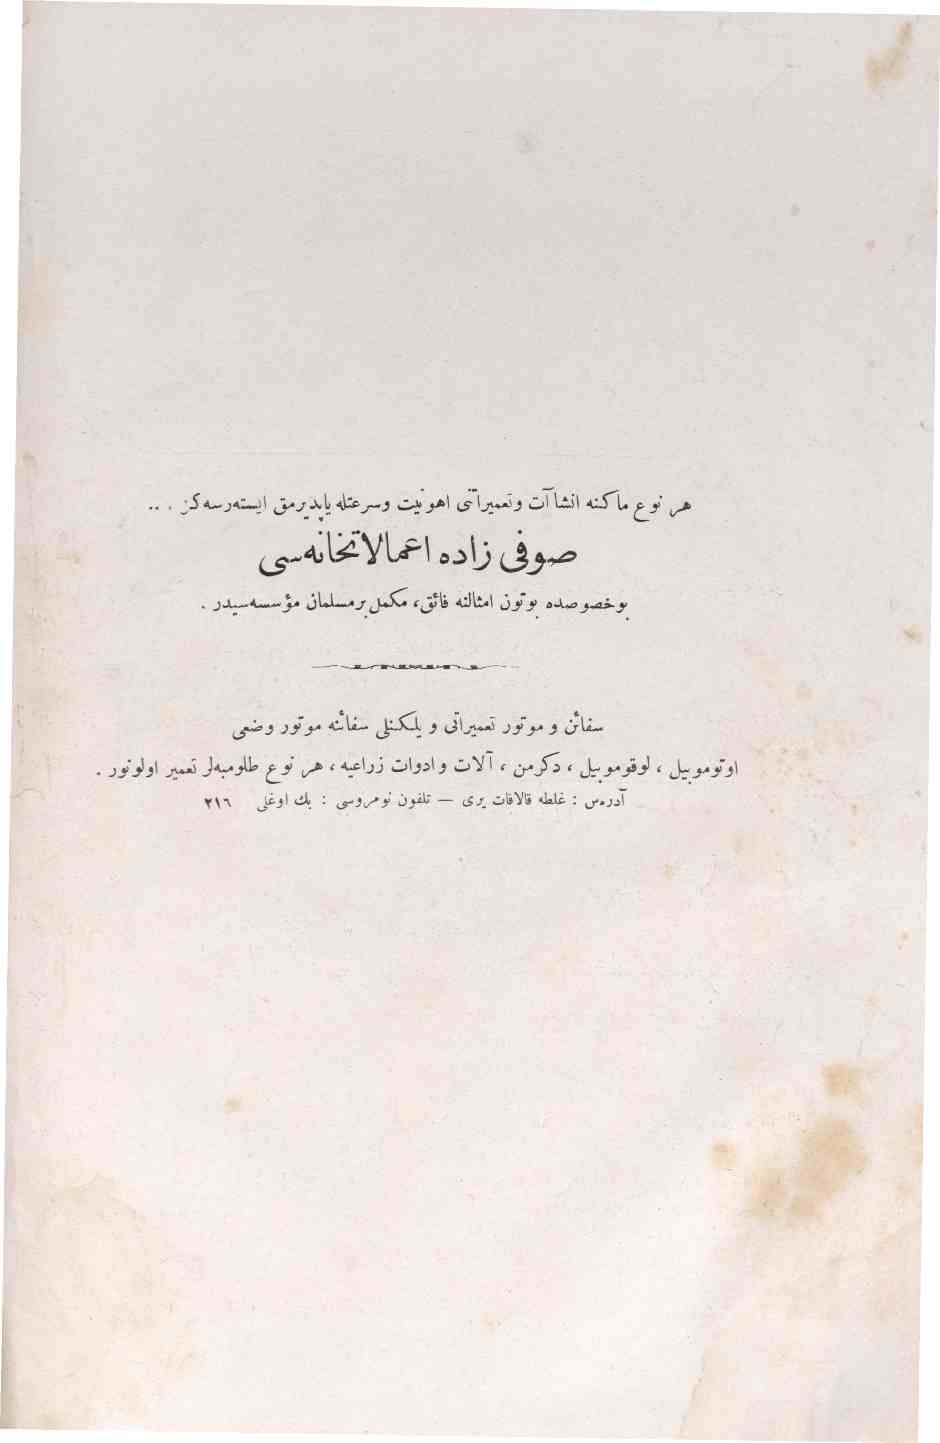 هر نوع ماكنه انشاآت وتعميراتنى اهونيت وسرعتله ياپديرمق ايسته‌رسه‌كز . ..
صوفى زاده اعمالاتخانه‌سى
بوخصوصده بوتون امثالنه فائق، مكمل برمسلمان مؤسسه‌سيدر .
سفائن و موتور تعميراتى و يلكنلى سفائنه موتور وضعى
اوتوموبيل ، لوقوموبيل ، دكرمن ، آلات وادوات زراعيه ، هر نوع طلومبه‌لر تعمير اولونور .
آدره‌س : غلطه قالافات يرى — تلفون نومروسى : بك اوغلى ٢١٦